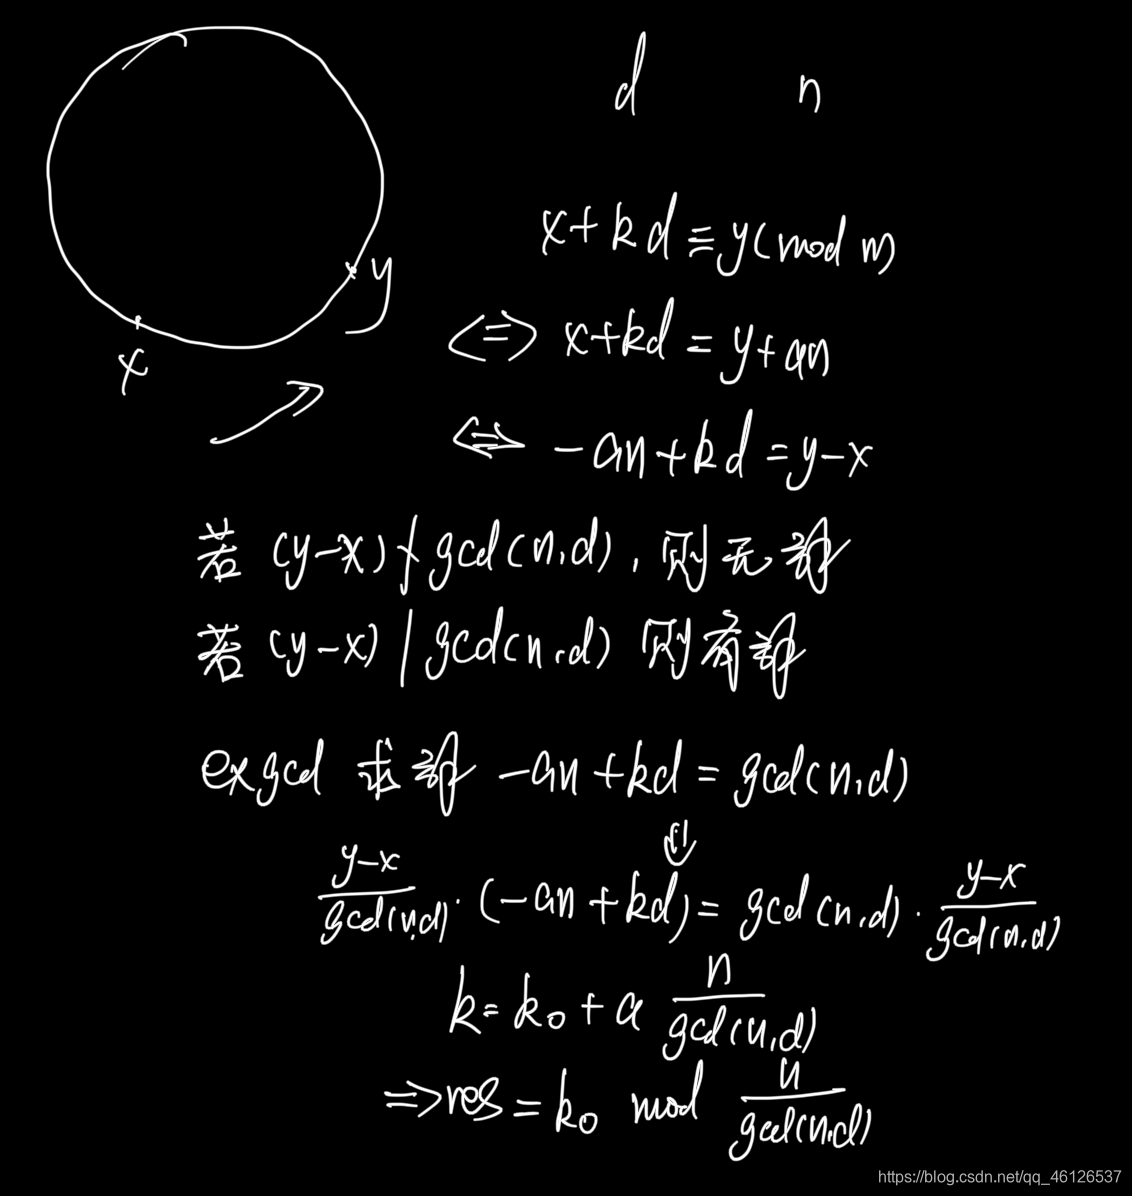 d n
x+kd≡y(mod n)
y
x
<=> x+kd=y+an
<=> -an+kd=y-x
若 (y-x)∤gcd(n,d), 则无解
若 (y-x)|gcd(n,d) 则有解
exgcd 求解 -an+kd=gcd(n,d)
⇓
\frac{y-x}{gcd(n,d)}·(-an+kd)=gcd(n,d)·\frac{y-x}{gcd(n,d)}
k=k₀+a\frac{n}{gcd(n,d)}
=>res=k₀ mod \frac{n}{gcd(n,d)}
https://blog.csdn.net/qq_46126537